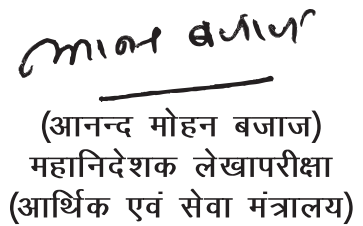 आनन्द बजाज
(आनन्द मोहन बजाज)
महानिदेशक लेखापरीक्षा
(आर्थिक एवं सेवा मंत्रालय)